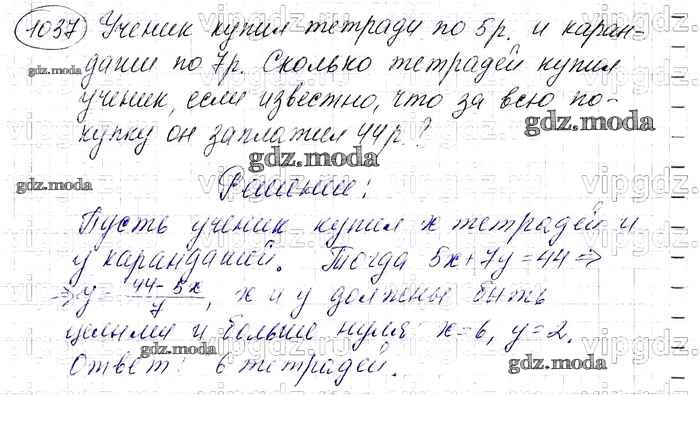 1037 Ученик купил тетради по 5р. и каран-
gdz.moda
даши по 7р. Сколько тетрадей купил
ученик, если известно, что за всю по-
купку он заплатил 44р?
gdz.moda
Решение:
gdz.moda
Пусть ученик купил x тетрадей и
y карандашей. Тогда 5x+7y=44 =>
=> y = (44-5x)/7, x и y должны быть
целыми и больше нуля: x=6, y=2.
gdz.moda
Ответ: 6 тетрадей.
gdz.moda